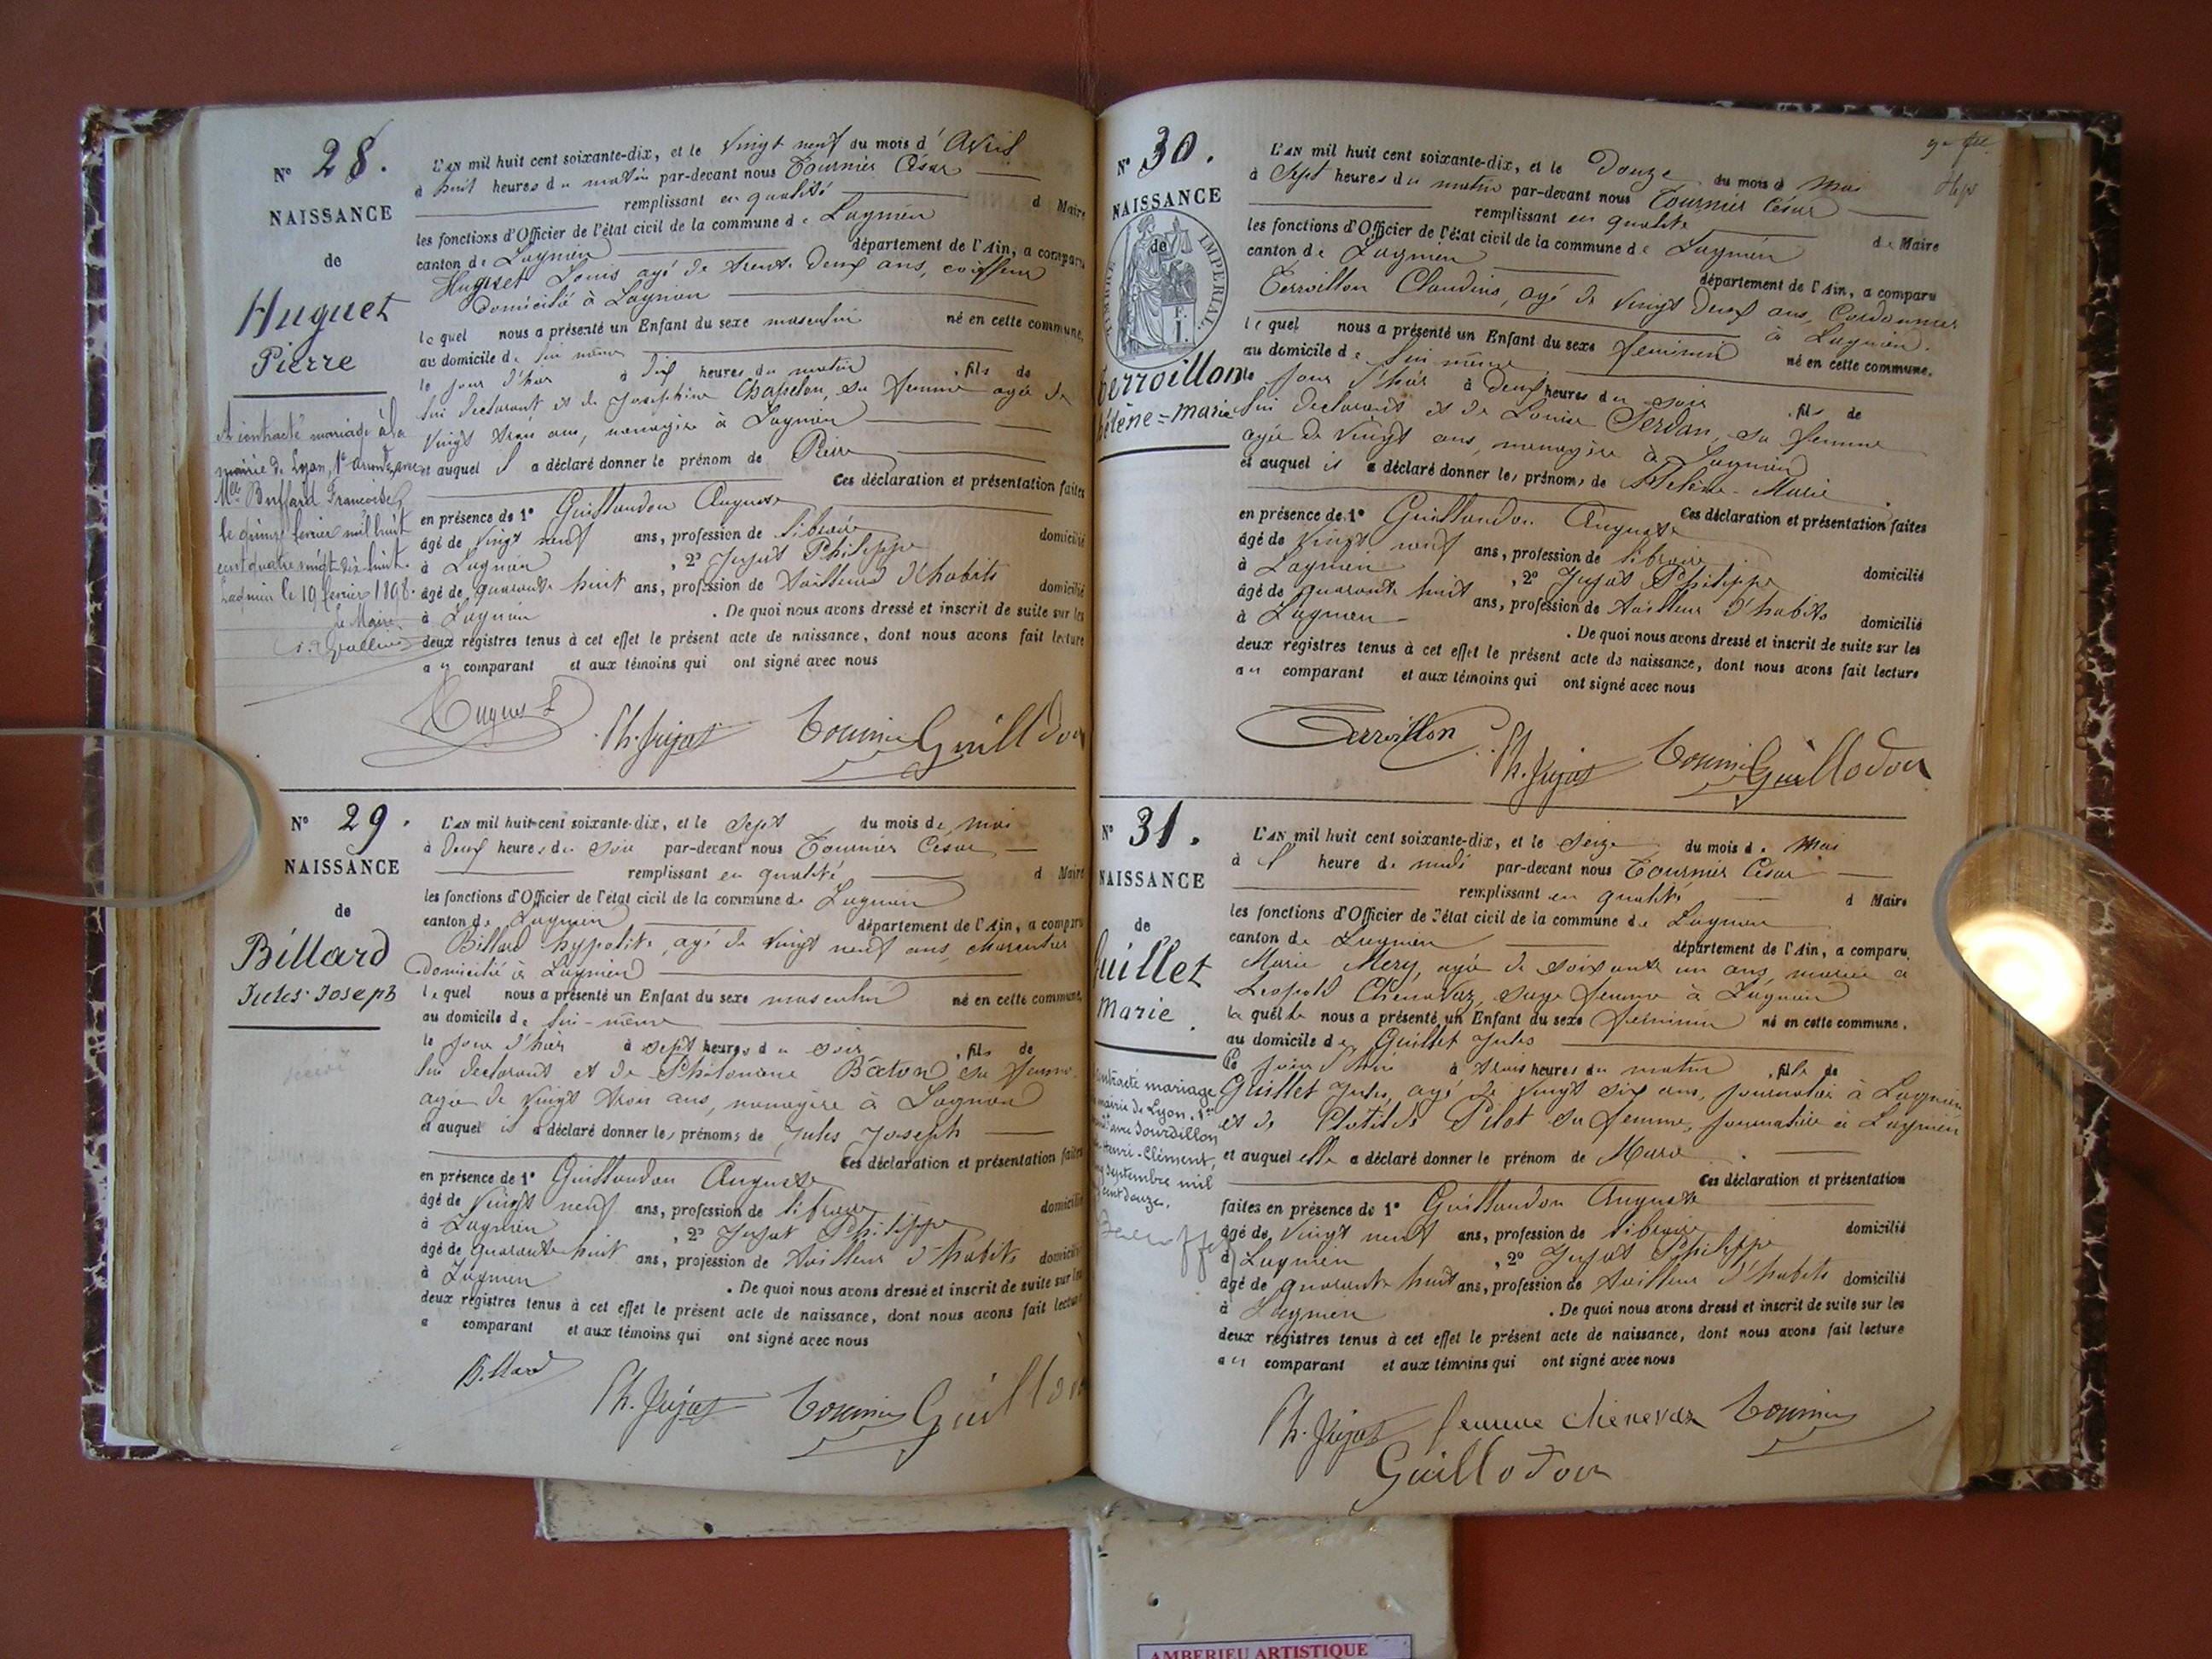 N° 28.
NAISSANCE
de
Huguet
Pierre
A contracté mariage à la
mairie de Lyon, 1er arrond.
Melle Buffard Françoise
le quinze février mil huit
cent quatre vingt dix huit.
Lagnieu le 19 février 1898.
Le Maire
L'AN mil huit cent soixante-dix, et le Vingt neuf du mois d' Avril
à huit heures du matin par-devant nous Tournier César
remplissant en qualité d Maire
les fonctions d'Officier de l'état civil de la commune de Lagnieu
canton de Lagnieu département de l'Ain, a comparu
Huguet Louis agé de trente deux ans, coiffeur
domicilié à Lagnieu
lequel nous a présenté un Enfant du sexe masculin né en cette commune,
au domicile de lui même
le jour d'hier à dix heures du matin, fils de
lui declarant et de Josephine Chapelon, sa femme agée de
Vingt trois ans, menagère à Lagnieu
et auquel il a déclaré donner le prénom de Pierre
Ces déclaration et présentation faites
en présence de 1° Guillaudon Auguste
âgé de vingt neuf ans, profession de libraire domicilié
à Lagnieu, 2° Jujat Philippe
âgé de quarante huit ans, profession de tailleur d'habits domicilié
à Lagnieu. De quoi nous avons dressé et inscrit de suite sur les
deux registres tenus à cet effet le présent acte de naissance, dont nous avons fait lecture
au comparant et aux témoins qui ont signé avec nous
Huguet Ph. Jujat Tournier Guillodon
N° 29.
NAISSANCE
de
Billard
Jules Joseph
L'AN mil huit-cent soixante-dix, et le Sept du mois de mai
à Deux heures du soir par-devant nous Tournier César
remplissant en qualité d Maire
les fonctions d'Officier de l'état civil de la commune de Lagnieu
canton de Lagnieu département de l'Ain, a comparu
Billard hypolite, agé de vingt neuf ans, charcutier
domicilié à Lagnieu
lequel nous a présenté un Enfant du sexe masculin né en cette commune,
au domicile de lui-même
le jour d'hier à sept heures du soir, fils de
lui declarant et de Philomène Bâton, sa femme
agée de vingt trois ans, menagère à Lagnieu
et auquel il a déclaré donner les prénoms de Jules Joseph
Ces déclaration et présentation faites
en présence de 1° Guillaudon Auguste
âgé de vingt neuf ans, profession de libraire domicilié
à Lagnieu, 2° Jujat Philippe
âgé de quarante huit ans, profession de tailleur d'habits domicilié
à Lagnieu. De quoi nous avons dressé et inscrit de suite sur les
deux registres tenus à cet effet le présent acte de naissance, dont nous avons fait lecture
a comparant et aux témoins qui ont signé avec nous
Billard Ph. Jujat Tournier Guillodon
N° 30.
NAISSANCE
de
TIMBRE IMPERIAL
Terroillon
Hélène-Marie
L'AN mil huit cent soixante-dix, et le Douze du mois d Mai
à Sept heures du matin par-devant nous Tournier César
remplissant en qualité de Maire
les fonctions d'Officier de l'état civil de la commune de Lagnieu
canton de Lagnieu département de l'Ain, a comparu
Terroillon Claudius, agé de vingt deux ans, Cordonnier
à Lagnieu.
lequel nous a présenté un Enfant du sexe feminin né en cette commune.
au domicile de lui même
le jour d'hier à deux heures du soir, fils de
lui declarant et de Louise Serdan, sa femme
agée de vingt ans, menagère à Lagnieu
et auquel il a déclaré donner les prénoms de Helène-Marie
Ces déclaration et présentation faites
en présence de 1° Guillaudon Auguste
âgé de vingt neuf ans, profession de libraire domicilié
à Lagnieu, 2° Jujat Philippe
âgé de quarante huit ans, profession de tailleur d'habits domicilié
à Lagnieu. De quoi nous avons dressé et inscrit de suite sur les
deux registres tenus à cet effet le présent acte de naissance, dont nous avons fait lecture
au comparant et aux témoins qui ont signé avec nous
Terroillon Ph. Jujat Tournier Guillodon
N° 31.
NAISSANCE
de
Guillet
Marie
contracté mariage
mairie de Lyon, 1er
avec Sourdillon
Henri-Clément,
septembre mil
cent douze.
L'AN mil huit cent soixante-dix, et le Seize du mois de Mai
à l heure de midi par-devant nous Tournier César
remplissant en qualité d Maire
les fonctions d'Officier de l'état civil de la commune de Lagnieu
canton de Lagnieu département de l'Ain, a comparu
Marie Mery, agée de soixante un ans, mariée à
Leopold Chénavaz, sage femme à Lagnieu
laquelle nous a présenté un Enfant du sexe féminin né en cette commune.
au domicile de Guillet Jules
le jour d'hier à trois heures du matin, fils de
Guillet Jules, agé de vingt six ans, journalier à Lagnieu
et de Clotilde Pilot sa femme, journalière à Lagnieu
et auquel elle a déclaré donner le prénom de Marie
Ces déclaration et présentation
faites en présence de 1° Guillaudon Auguste
âgé de vingt neuf ans, profession de libraire domicilié
à Lagnieu, 2° Jujat Philippe
âgé de quarante huit ans, profession de tailleur d'habits domicilié
à Lagnieu. De quoi nous avons dressé et inscrit de suite sur les
deux registres tenus à cet effet le présent acte de naissance, dont nous avons fait lecture
au comparant et aux témoins qui ont signé avec nous
Ph. Jujat femme Chenevaz Tournier
Guillodon
AMBERIEU ARTISTIQUE